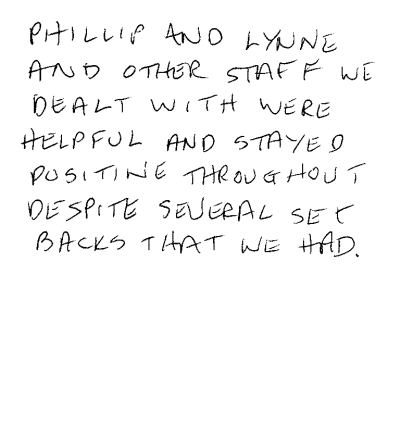 PHILLIP AND LYNNE
AND OTHER STAFF WE
DEALT WITH WERE
HELPFUL AND STAYED
POSITIVE THROUGHOUT
DESPITE SEVERAL SET
BACKS THAT WE HAD.